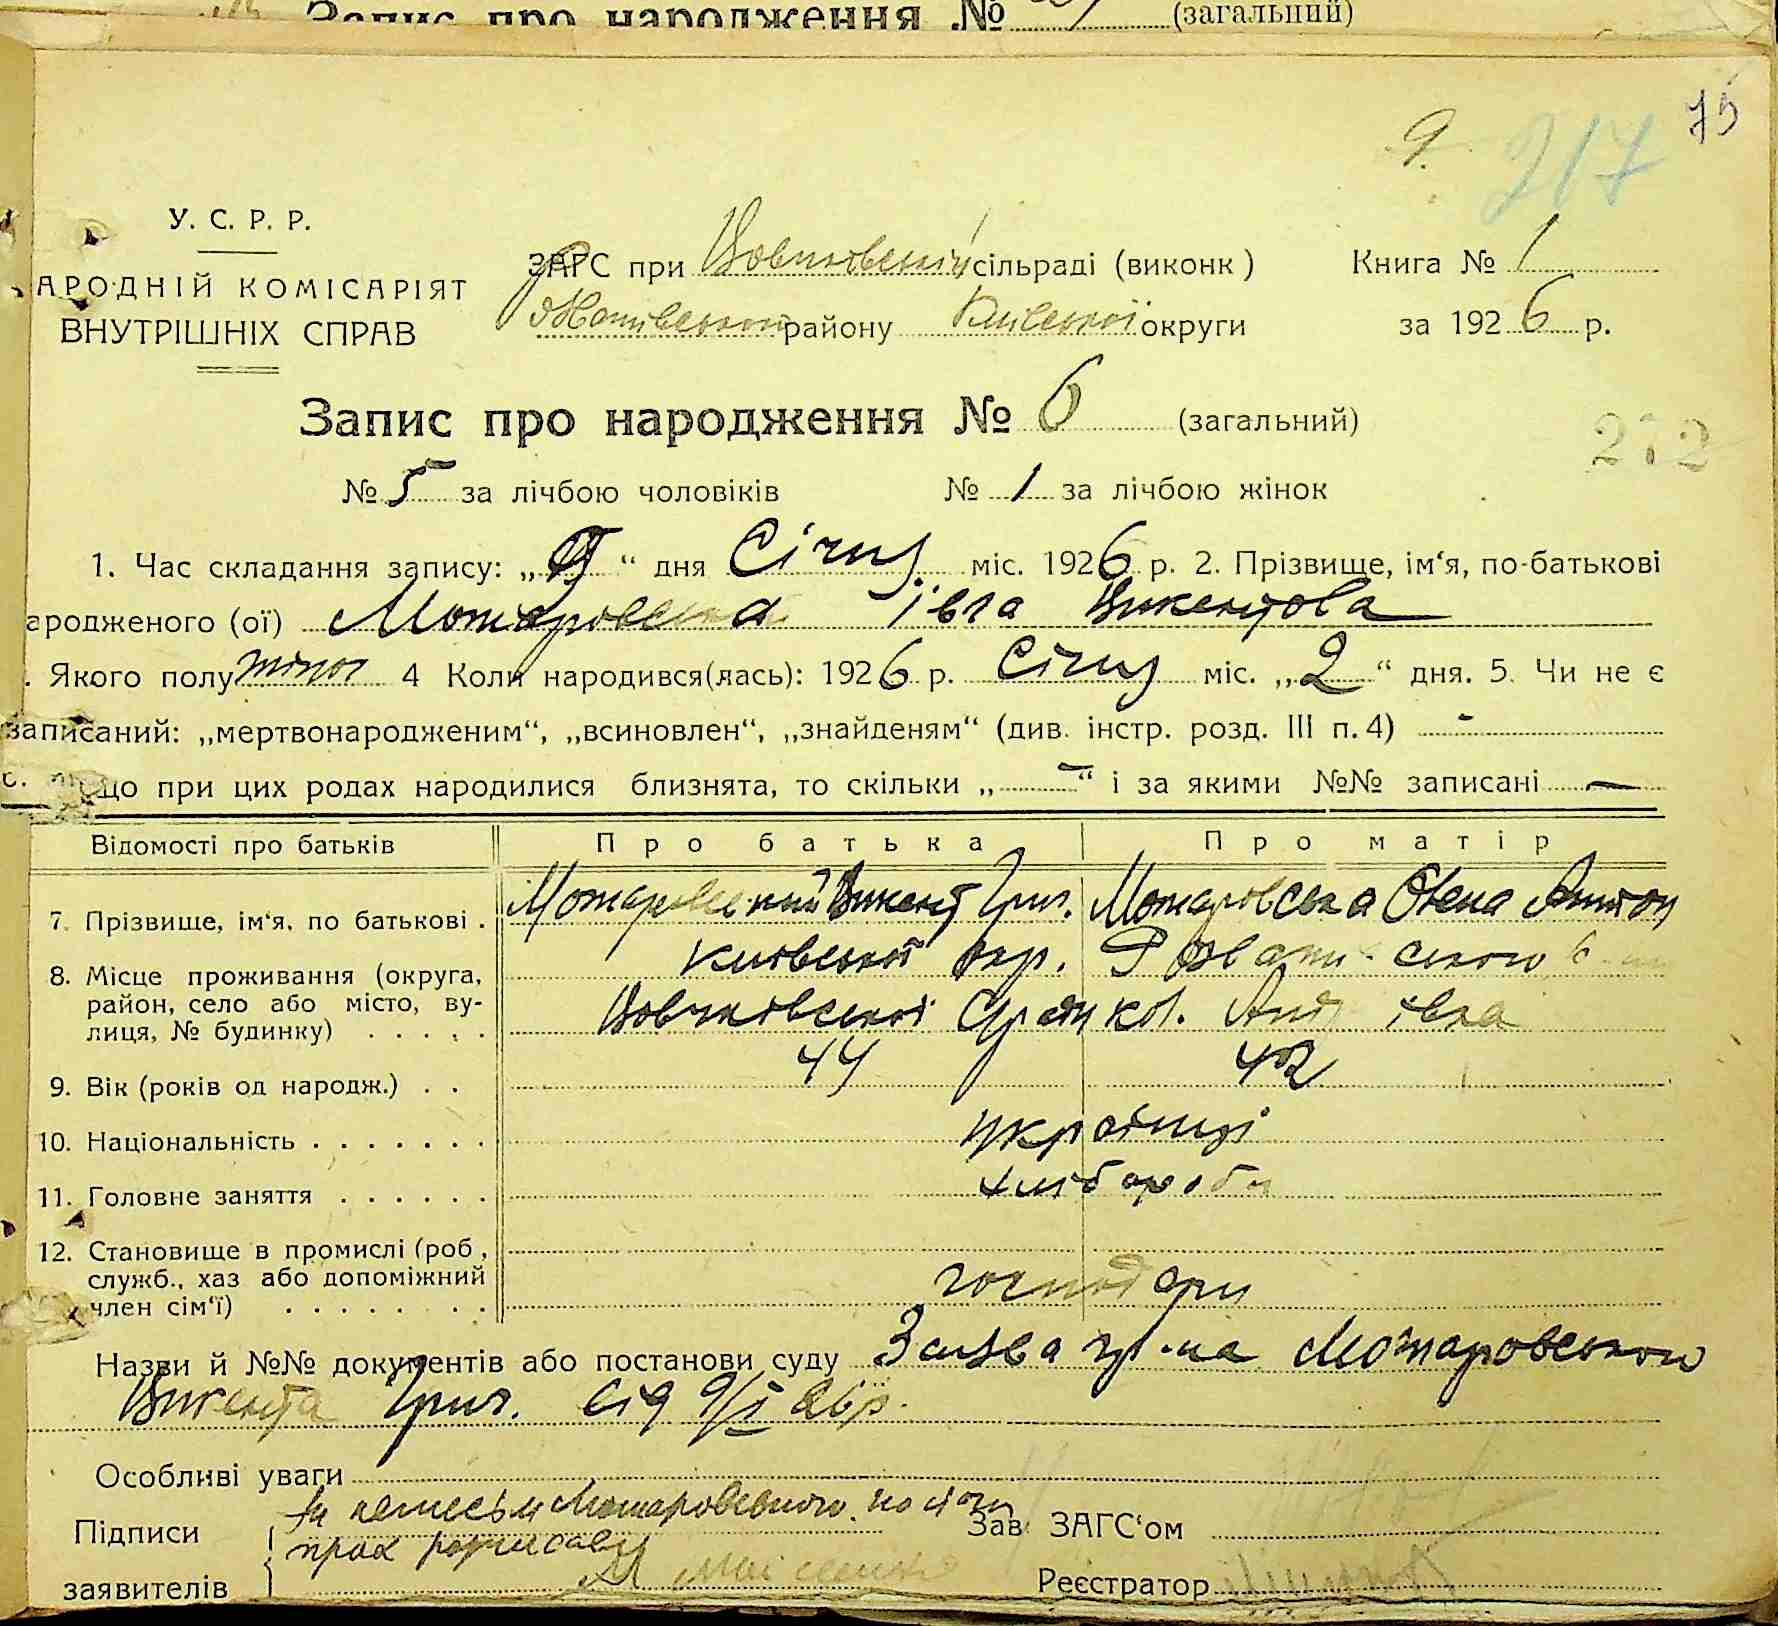 Запис про народження № (загальний)
75
9.
217
У. С. Р. Р.
АРОДНІЙ КОМІСАРІЯТ
ВНУТРІШНІХ СПРАВ
ЗАГС при сільраді (виконк) Книга № 1
району Київської округи за 1926 р.
Запис про народження № 6 (загальний)
272
№ 5 за лічбою чоловіків № 1 за лічбою жінок
1. Час складання запису: „ “ дня Січня міс. 1926 р. 2. Прізвище, ім‘я, по-батькові
ародженого (ої) Можаровська Івга Викентова
. Якого полу жіноч 4 Коли народився(лась): 1926 р. Січня міс. „2“ дня. 5. Чи не є
записаний: „мертвонародженим“, „всиновлен“, „знайденям“ (див. інстр. розд. III п. 4) -
що при цих родах народилися близнята, то скільки „—“ і за якими №№ записані —
Відомості про батьків Про батька Про матір
7. Прізвище, ім‘я, по батькові . Можаровський Викент Григ. Можаровська Олена Антон
8. Місце проживання (округа, район, село або місто, ву-лиця, № будинку) . . . . . Київської окр.
Вовчківської Сради кол.
9. Вік (років од народж.) . . 44 42
10. Національність . . . . . . . українці
11. Головне заняття . . . . . . хлібороби
12. Становище в промислі (роб, служб., хаз або допоміжний член сім‘ї) . . . . . . . . господари
Назви й №№ документів або постанови суду Заява гр-на Можаровського
Викента Григ. від 9/I 26р.
Особливі уваги
Підписи За Можаровського Зав ЗАГС‘ом
заявителів Реєстратор